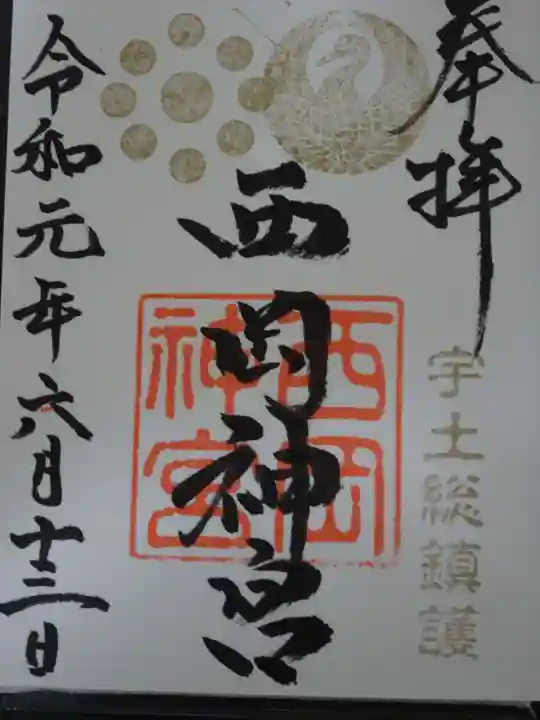 奉拝
宇土総鎮護
西岡神宮
西岡神宮
令和元年六月十三日